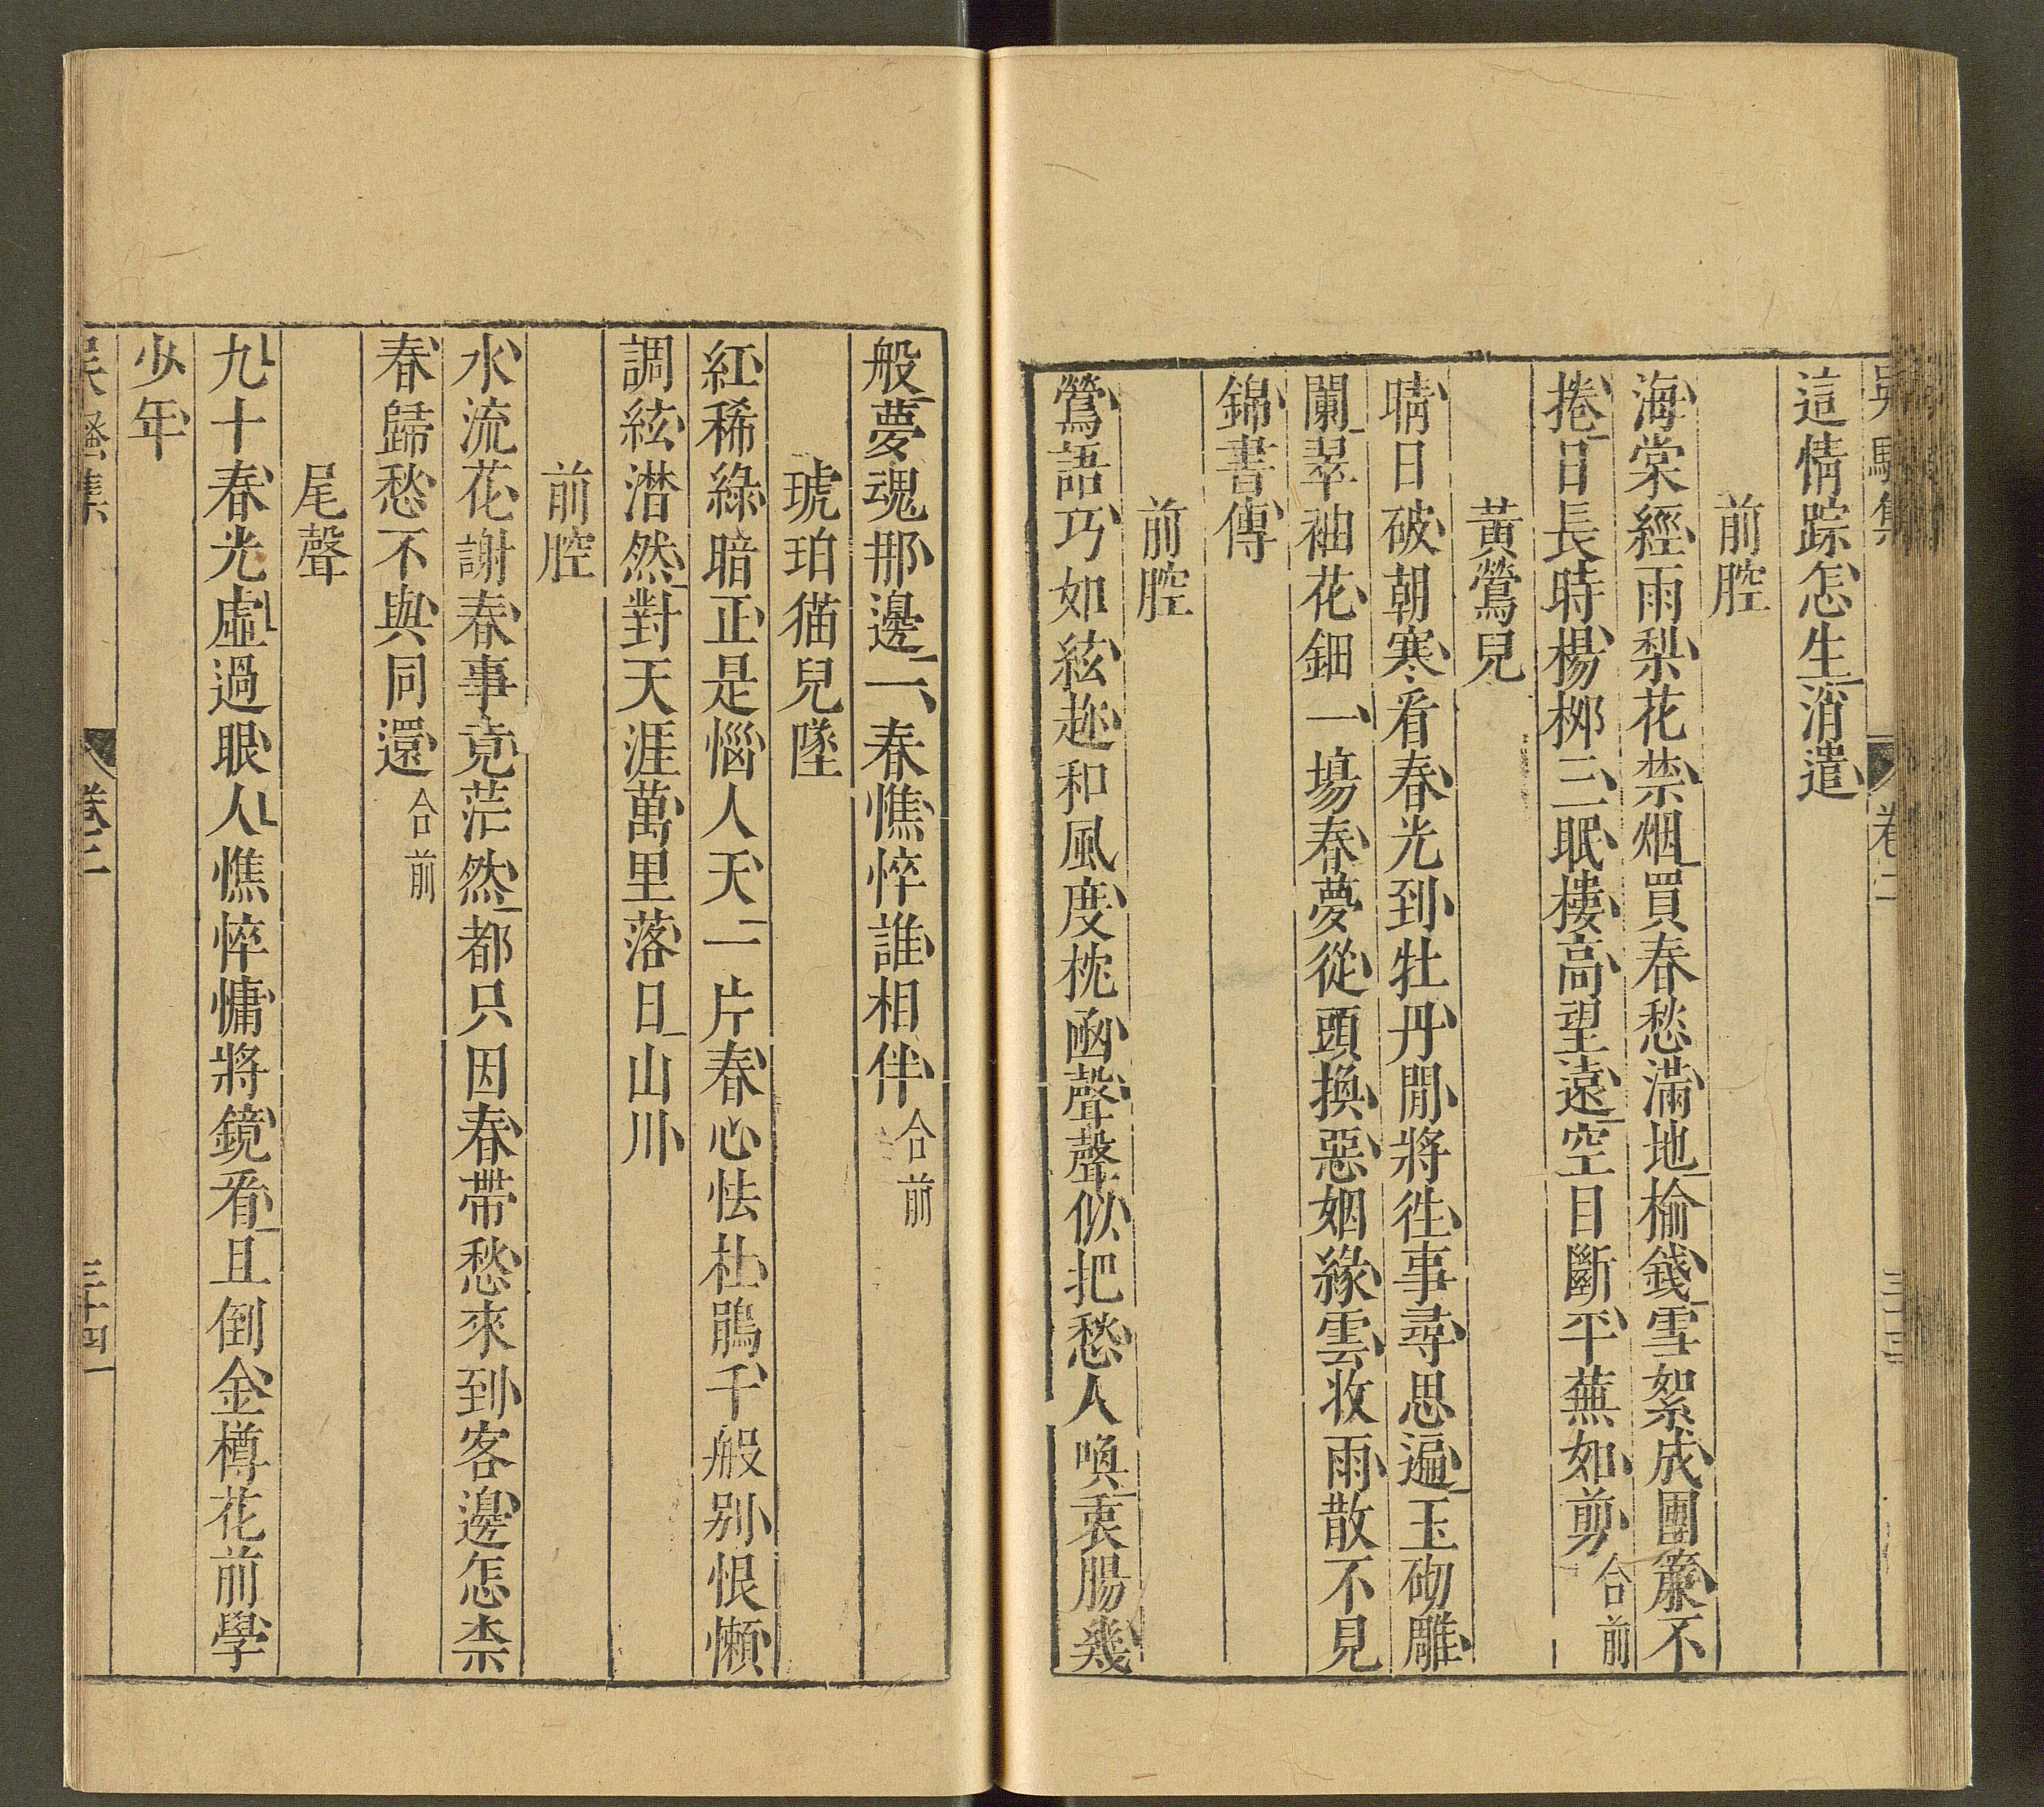 吳騷集 卷二 三十三
這情踪怎生消遣
前腔
海棠經雨梨花禁烟買春愁滿地榆錢雪絮成團簾不
捲日長時楊柳三眠樓高望遠空目斷平蕪如剪合前
黃鶯兒
晴日破朝寒看春光到牡丹閒將徃事尋思遍玉砌雕
闌翠袖花鈿一場春夢從頭換惡姻緣雲收雨散不見
錦書傳
前腔
鶯語巧如絃趂和風度枕函聲聲似把愁人喚衷腸幾
般夢魂那邊一春憔悴誰相伴合前
琥珀猫兒墜
紅稀綠暗正是惱人天一片春心怯杜鵑千般别恨懶
調絃潸然對天涯萬里落日山川
前腔
水流花謝春事竟茫然都只因春帶愁來到客邊怎柰
春歸愁不與同還合前
尾聲
九十春光虛過眼人憔悴慵將鏡看且倒金樽花前學
少年
吳騷集 卷二 三十四